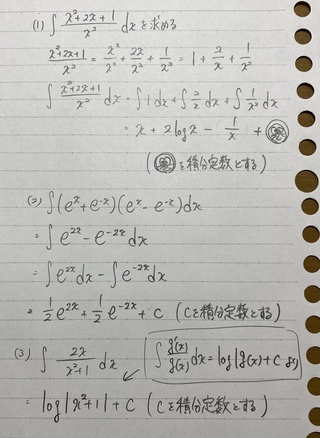 (1) ∫ x²+2x+1/x² dx を求める
x²+2x+1/x² = x²/x² + 2x/x² + 1/x² = 1 + 2/x + 1/x²
∫ x²+2x+1/x² dx = ∫1dx + ∫2/x dx + ∫1/x² dx
= x + 2logx - 1/x +
( を積分定数とする)
(2) ∫(eˣ+e⁻ˣ)(eˣ-e⁻ˣ)dx
= ∫e²ˣ-e⁻²ˣdx
= ∫e²ˣdx - ∫e⁻²ˣdx
= 1/2 e²ˣ + 1/2 e⁻²ˣ + C (Cを積分定数とする)
(3) ∫ 2x/x²+1 dx
∫ g'(x)/g(x) dx = log|g(x)+C より
= log|x²+1| + C (Cを積分定数とする)